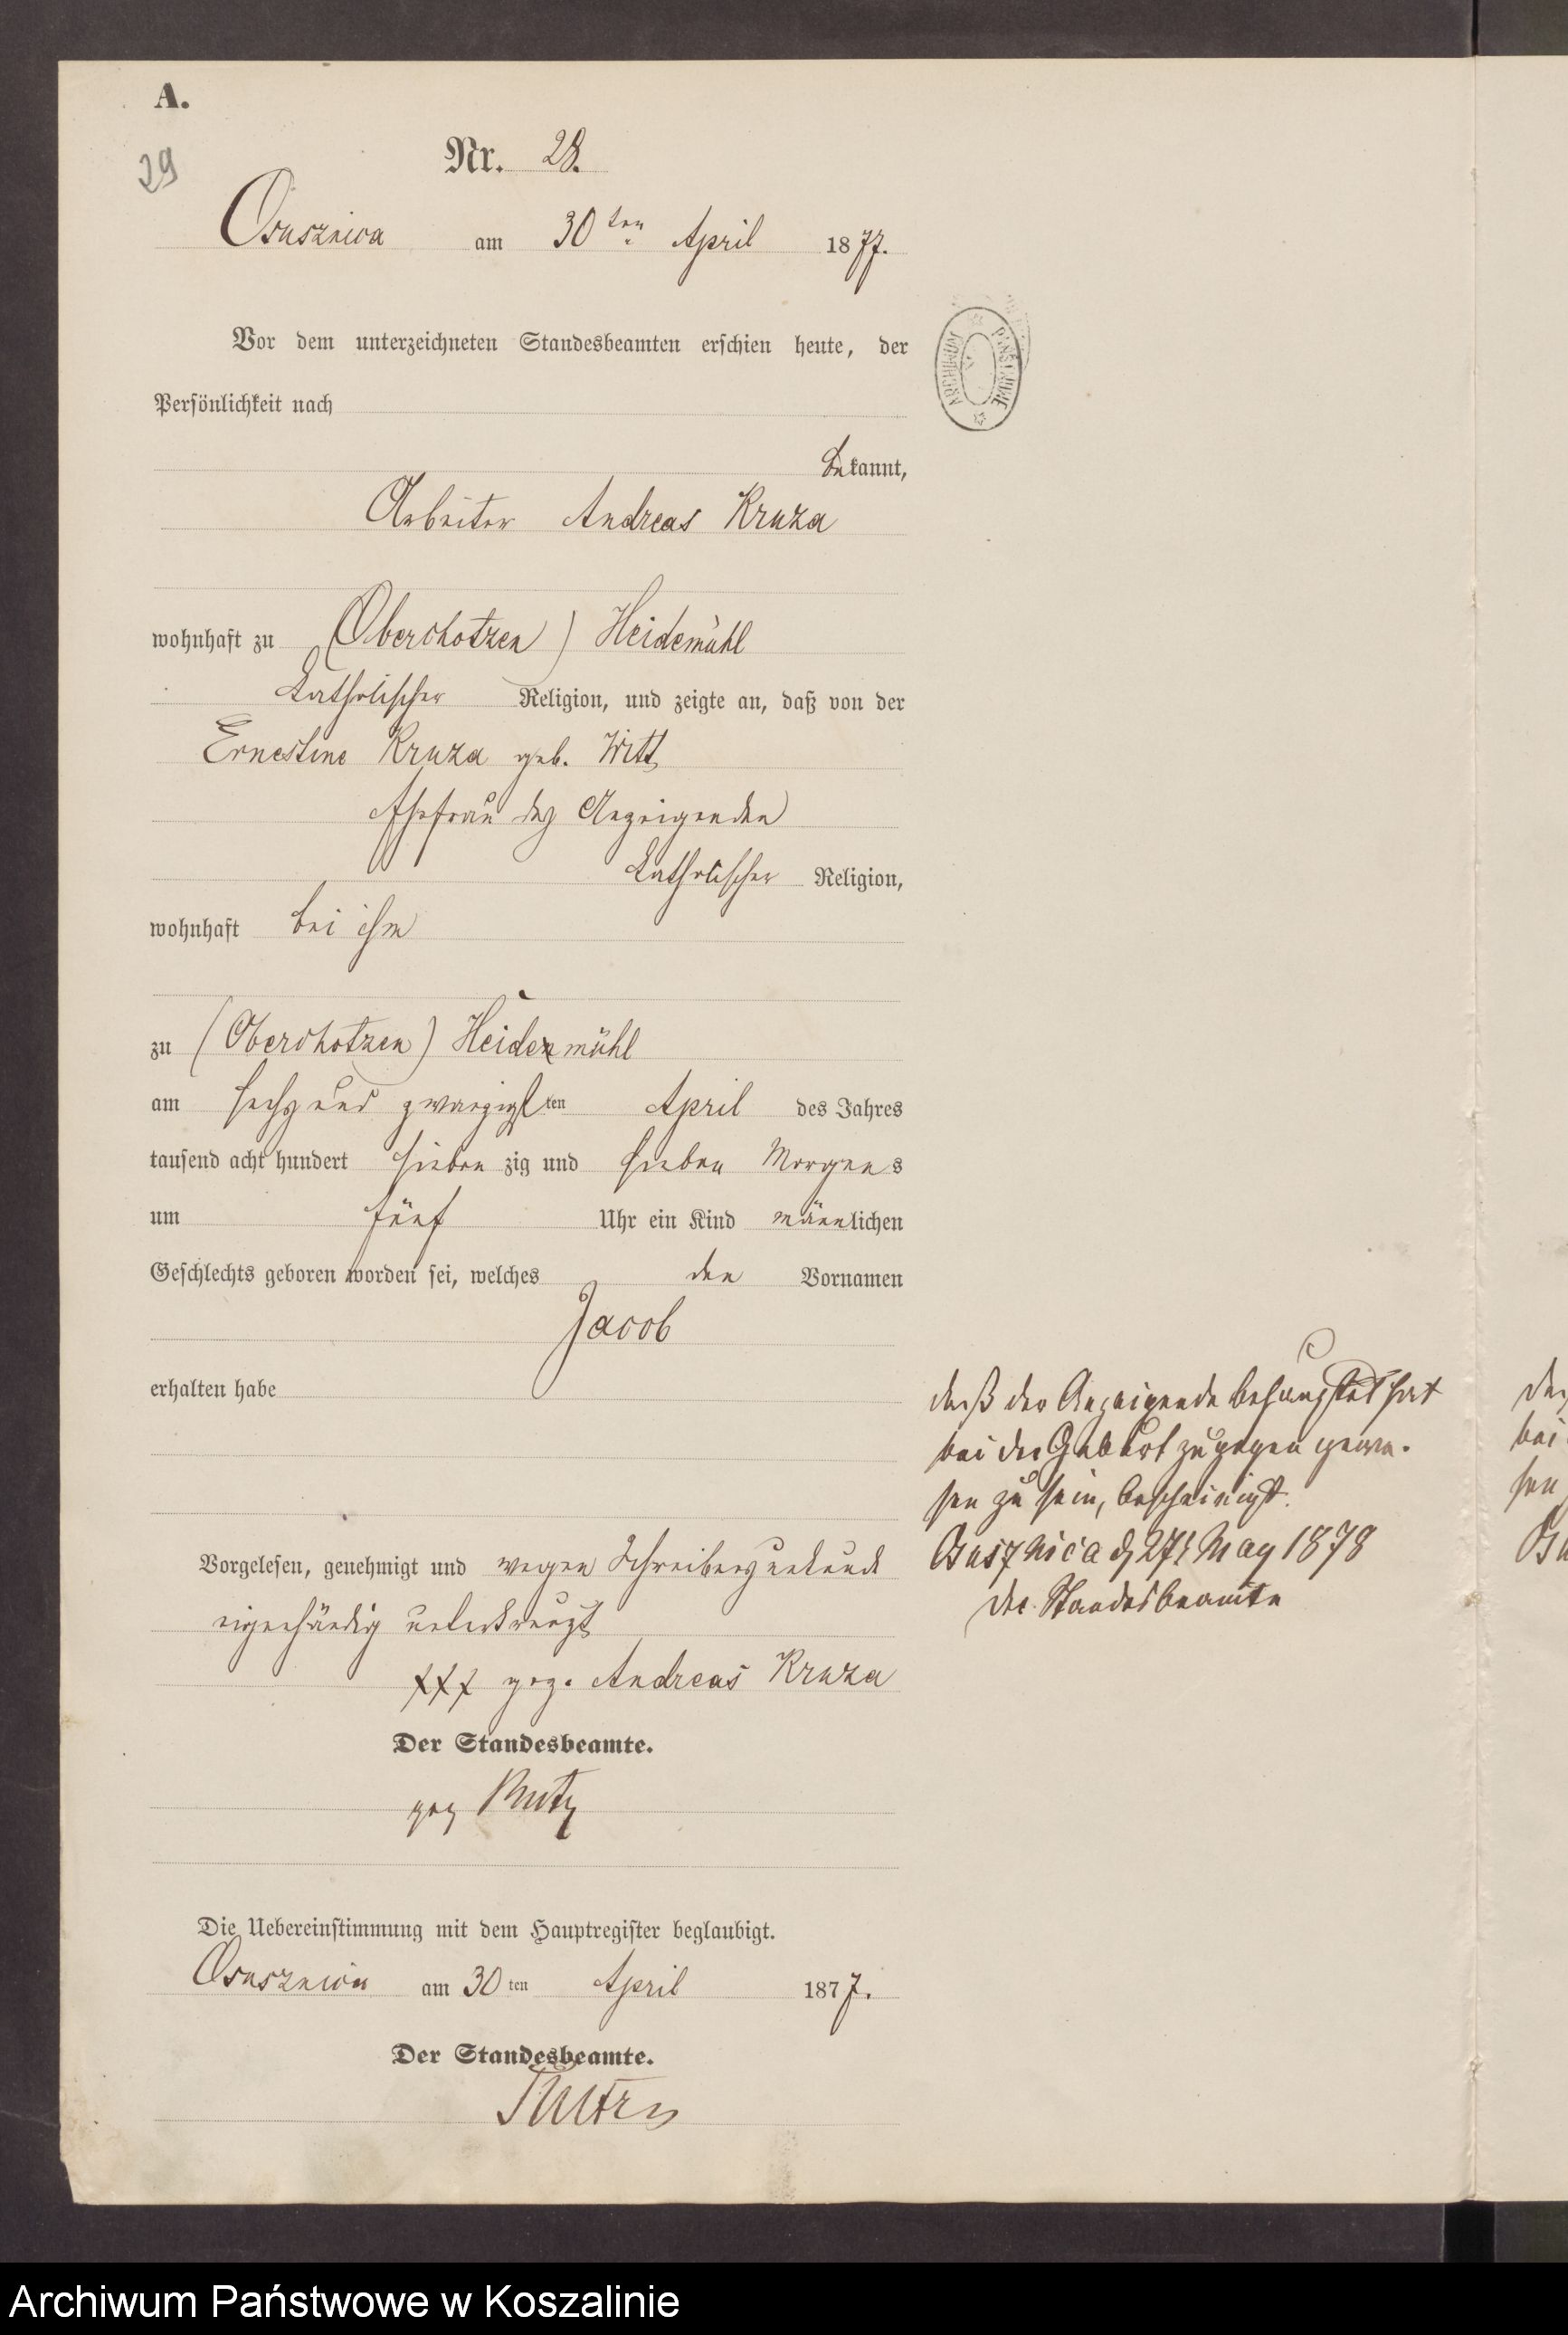 A.
29
Nr. 28.
Osusznica am 30ten April 1877.
Vor dem unterzeichneten Standesbeamten erschien heute, der
Persönlichkeit nach
bekannt,
Arbeiter Andreas Kruza
wohnhaft zu (Oberchotzen) Heidemühl
katholischer Religion, und zeigte an, daß von der
Ernestine Kruza geb. Witt
Ehefrau des Anzeigenden
katholischer Religion,
wohnhaft bei ihm
zu (Oberchotzen) Heidemühl
am sechs und zwanzigsten April des Jahres
tausend acht hundert sieben zig und sieben Morgens
um fünf Uhr ein Kind männlichen
Geschlechts geboren worden sei, welches den Vornamen
Jacob
erhalten habe
Vorgelesen, genehmigt und wegen Schreibensunkunde
eigenhändig unterkreuzt
xxx gez. Andreas Kruza
Der Standesbeamte.
gez
Die Uebereinstimmung mit dem Hauptregister beglaubigt.
Osusznica am 30ten April 1877.
Der Standesbeamte.
ARCHIWUM PAŃSTWOWE
daß der Anzeigende behauptet hat
bei der Geburt zugegen gewe-
sen zu sein, bescheinigt.
Osusznica d 27t May 1878
der Standesbeamte
Archiwum Państwowe w Koszalinie